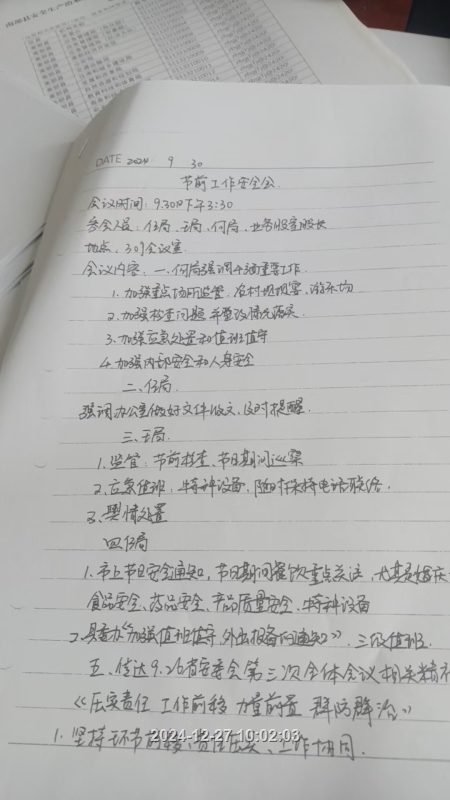 南部县安全生产
DATE 2024 9 30
节前工作安全会
会议时间：9.30日下午3:30
参会人员：任局、王局、何局、业务股室股长
地点：3门会议室
会议内容：一、何局强调4项重要工作
1.加强重点场所监管，农村坝坝宴、游乐场
2.加强检查问题 并整改情况落实
3.加强应急处置和值班值守
4.加强内部安全和人身安全
二、任局
强调办公室做好文件收文，及时提醒.
三、王局.
1.监管：节前检查、节日期间巡察
2.应急值班：特种设备，随时保持电话联络.
3.舆情处置
四任局
1.市上节日安全通知，节日期间餐饮重点关注，尤其是婚庆
食品安全、药品安全、产品质量安全、特种设备
2.县委办《加强值班值守，外出报备的通知》，三级值班.
五、传达9.26省安委会第三次全体会议相关精
《压实责任 工作前移 力量前置 群防群治》
1.坚持环节前移、责任压实、工作协同.
2024-12-27 10:02:03